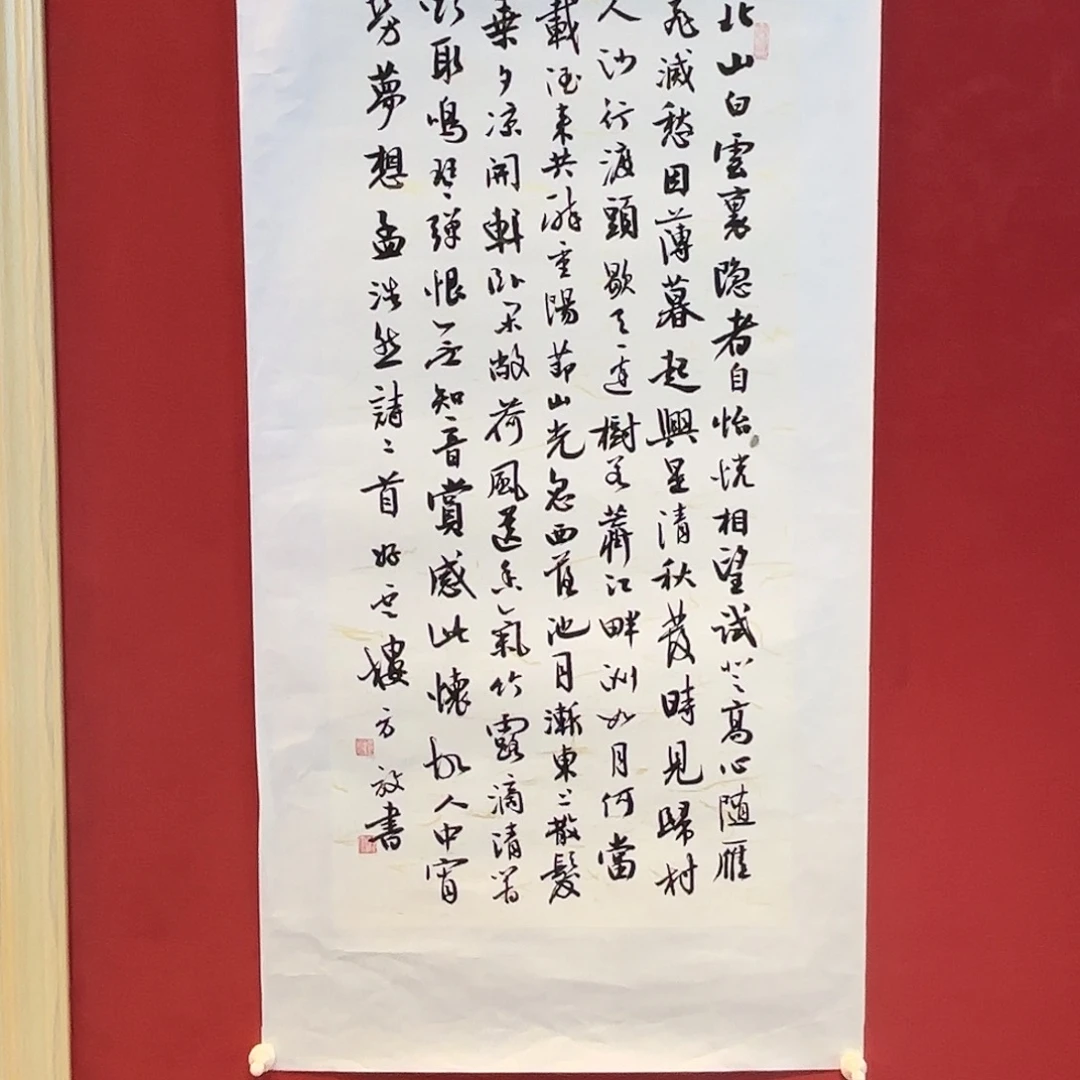 北山白雲裏隐者自怡悦相望試登高心随雁
飛滅愁因薄暮起興是清秋發時見歸村
人沙行渡頭歇天邊樹若薺江畔洲如月何當
載酒來共醉重陽節山光忽西落池月漸東上散髮
乘夕凉開軒臥闲敞荷風送香氣竹露滴清響
欲取鳴琴彈恨無知音賞感此懷故人中宵
勞夢想孟浩然詩二首好云樓方放書